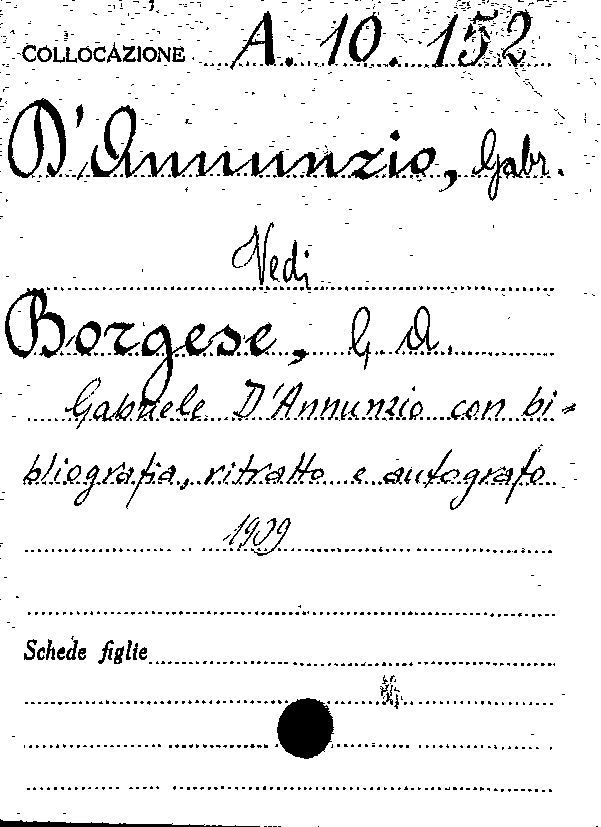 COLLOCAZIONE A. 10. 152
D'Annunzio, Gabr.
Vedi
Borgese, G. A.
Gabriele D'Annunzio con bi-
bliografia, ritratto e autografo
1909
Schede figlie